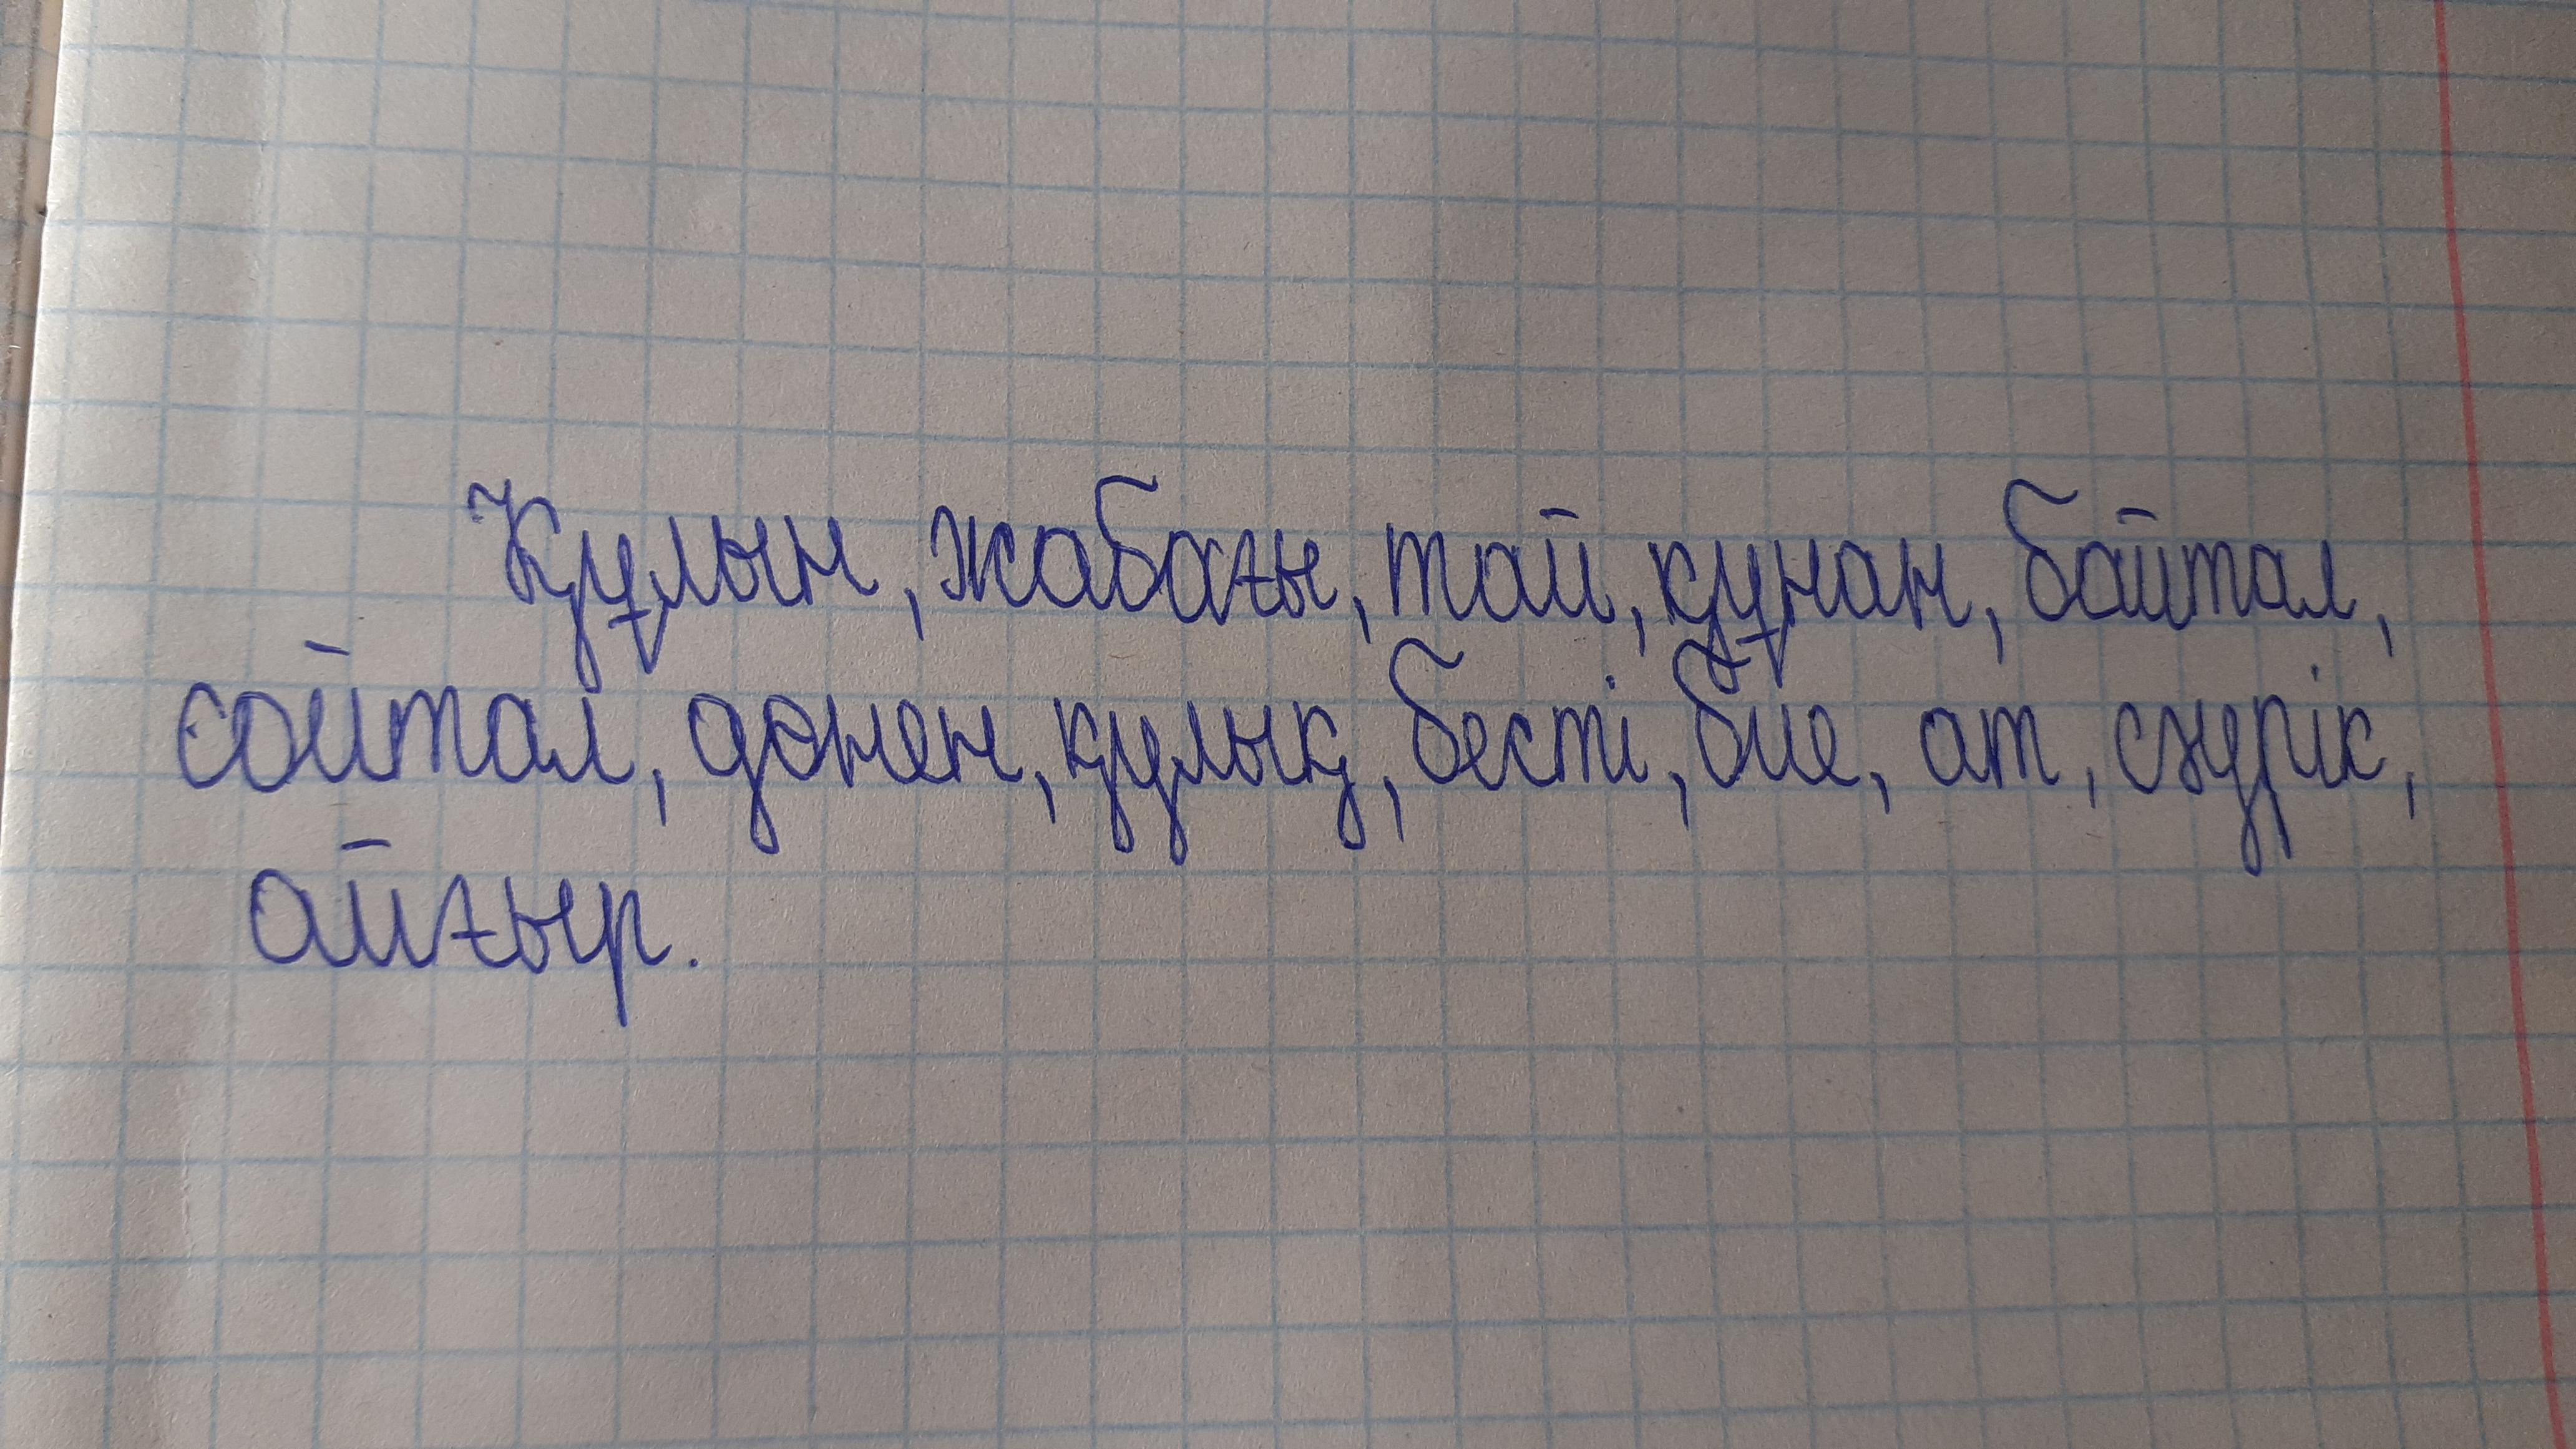 Құлын, жабағы, тай, құнан, байтал,
сойтал, дөнен, құлық, бесті, бие, ат, сәурік,
айғыр.